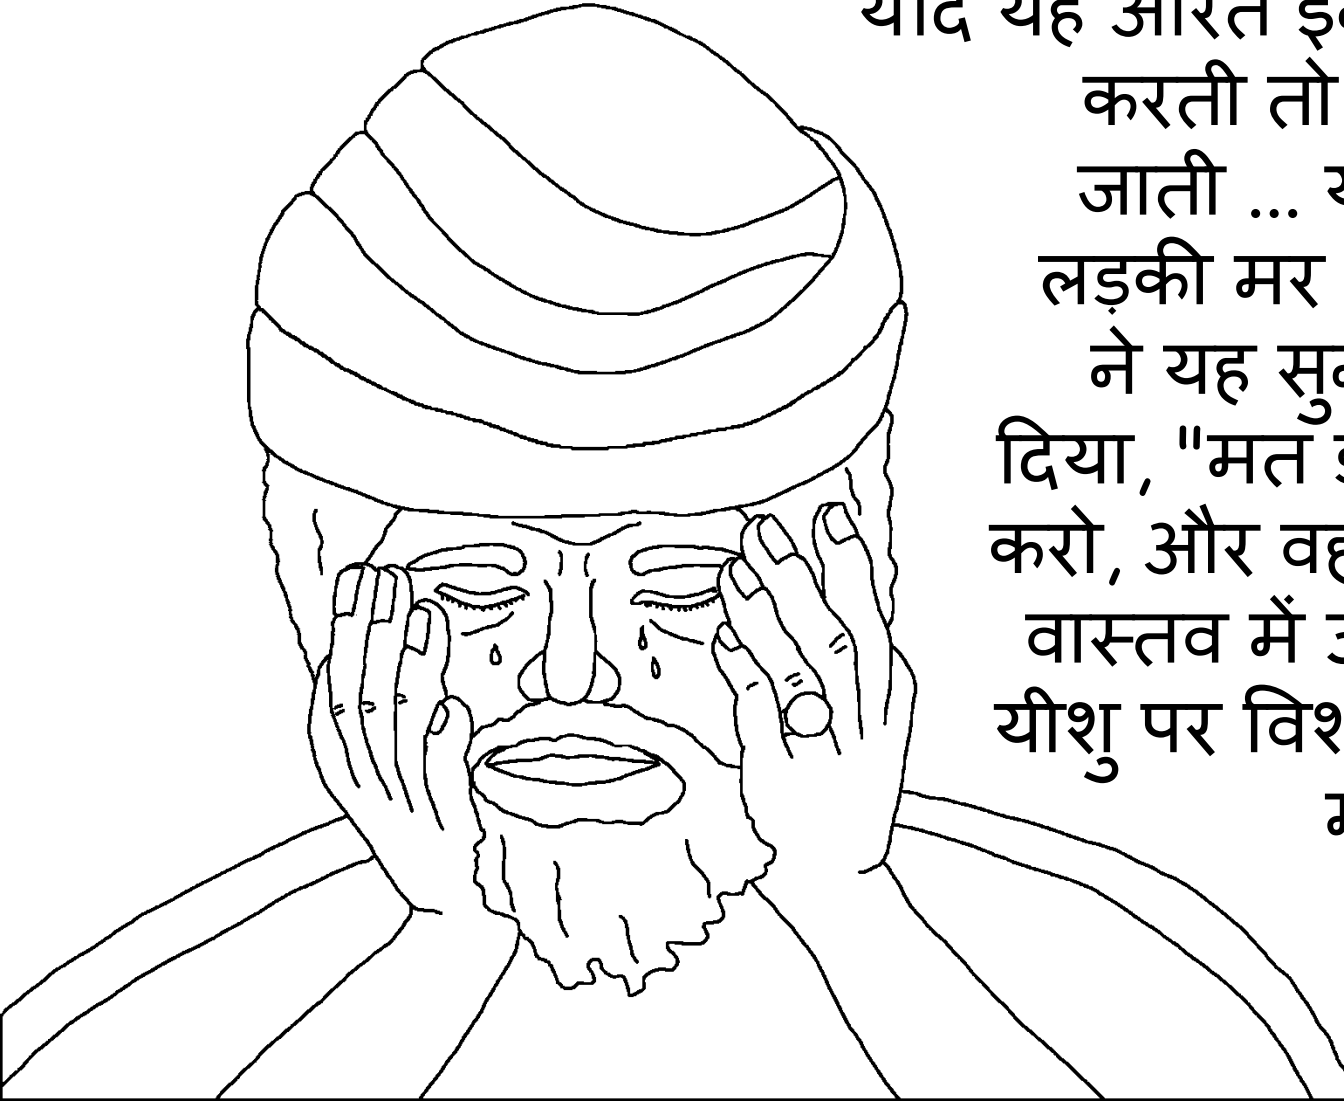 यदि यह औरत
करती तो
जाती ...
लड़की मर
ने यह
दिया, "मत
करो, और वह
वास्तव में
यीशु पर